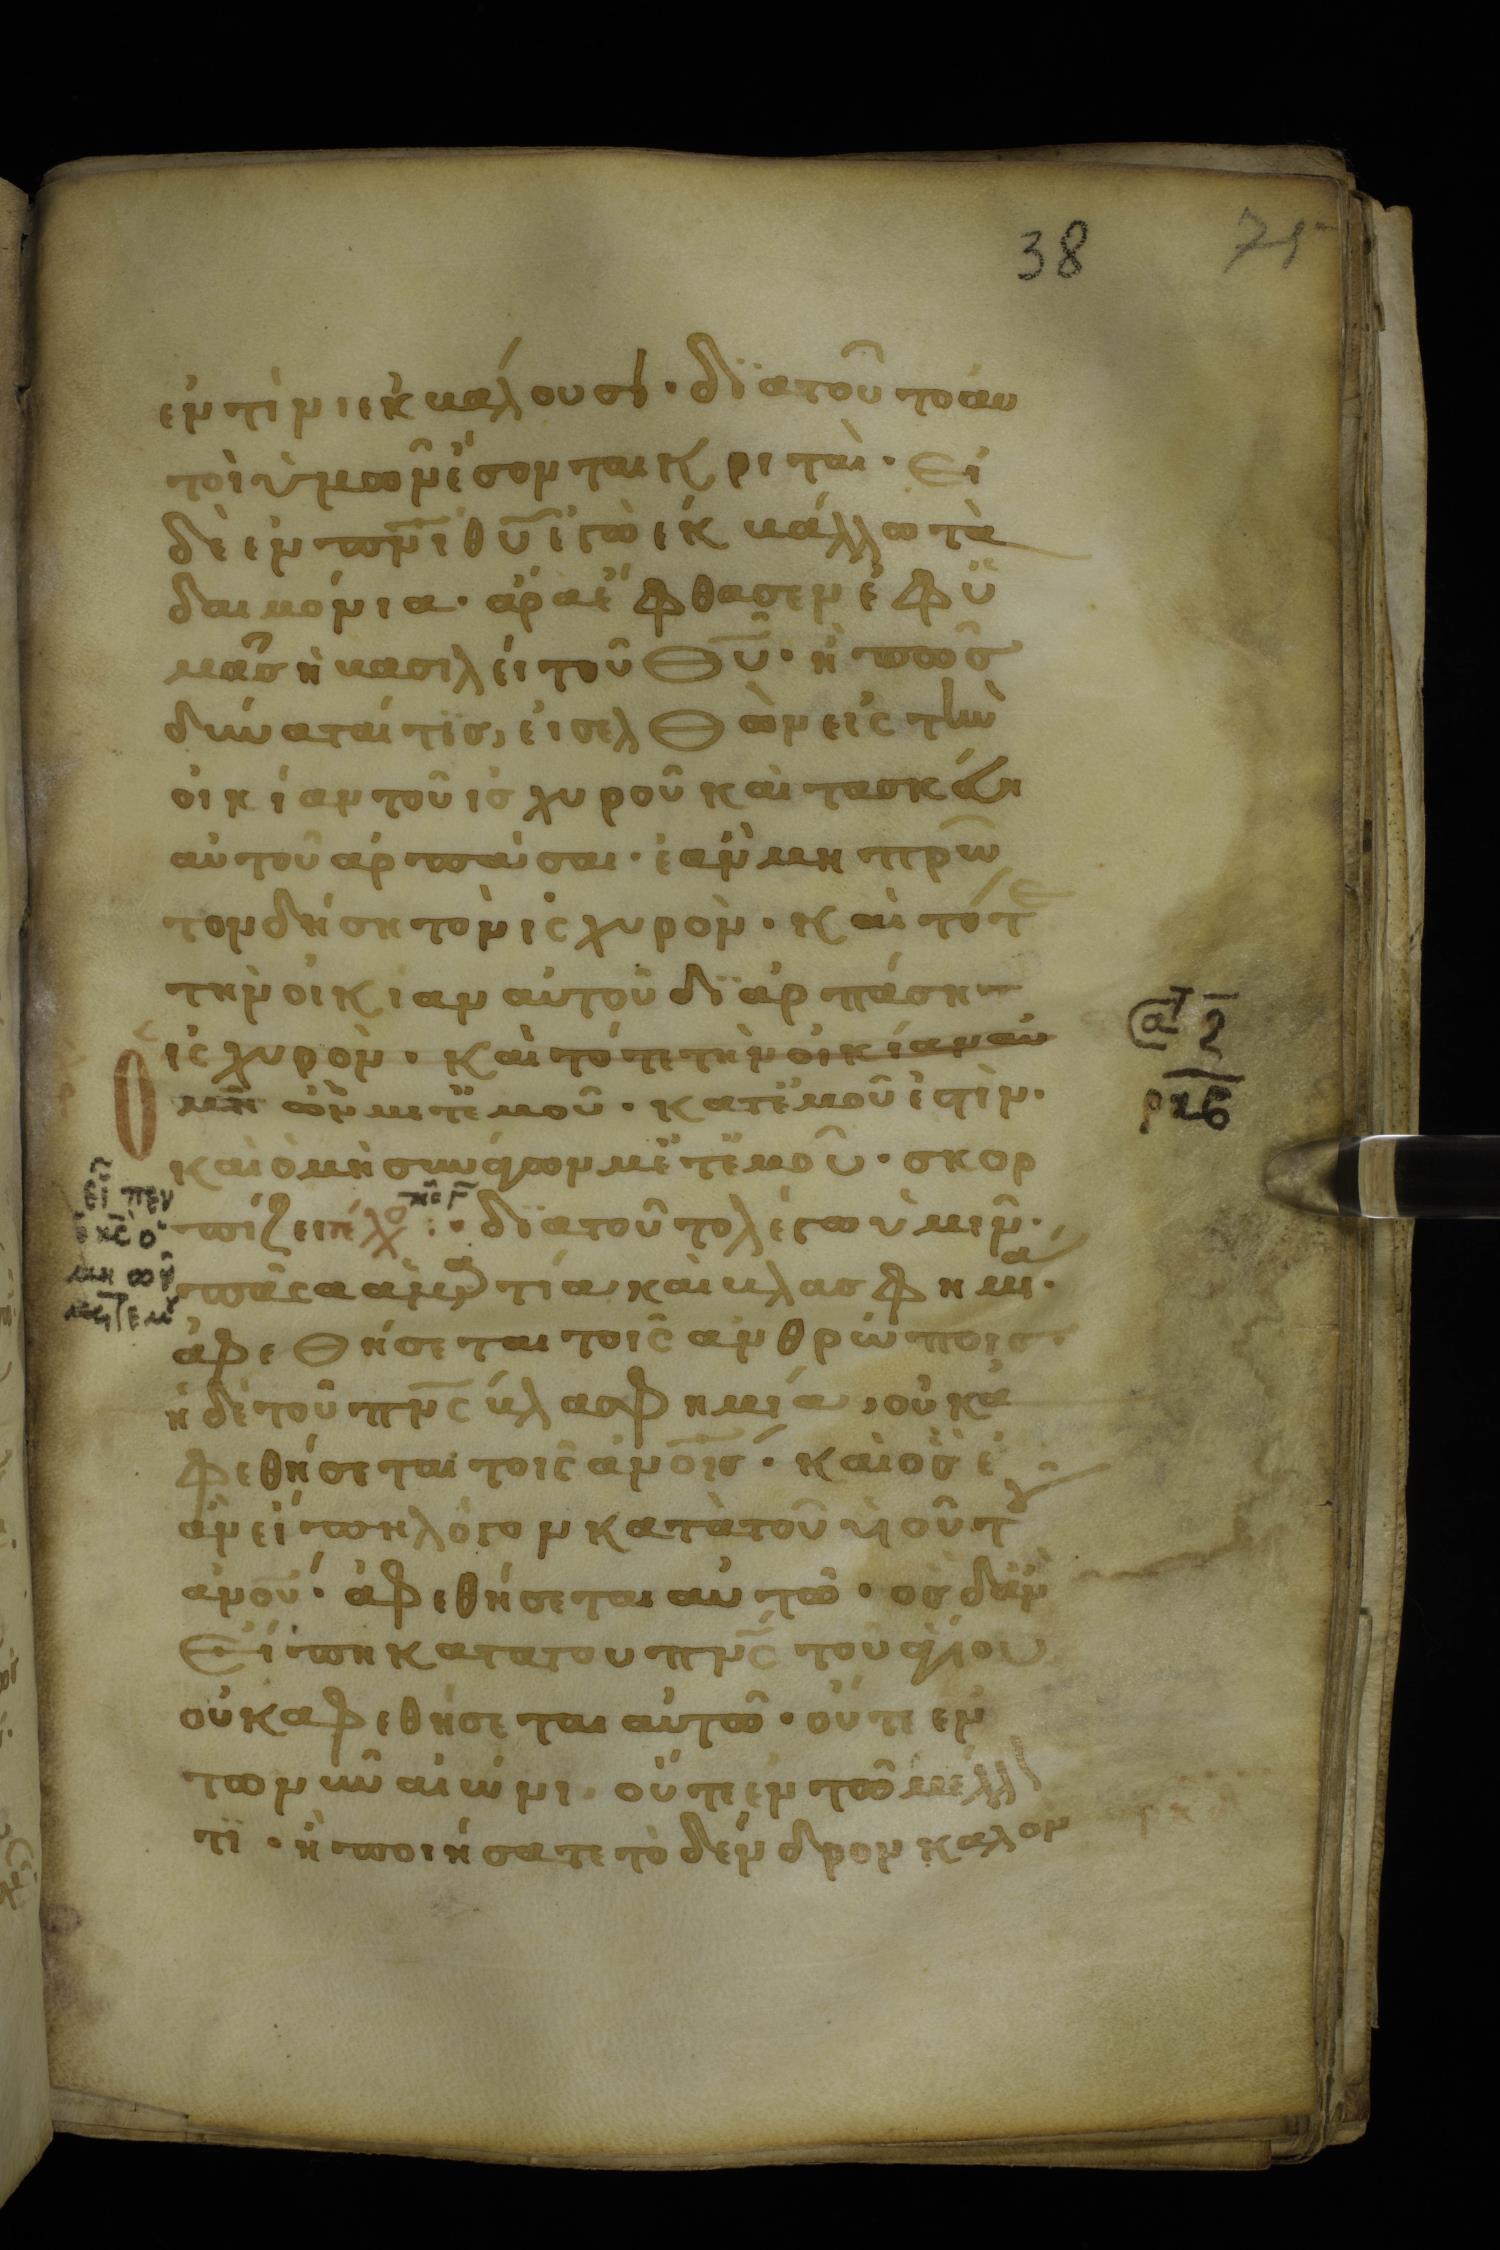 38 75
ἐν τίνι ἐκβάλουσιν· διατοῦτο αυ
τοὶ ὑμῶν ἔσονται κριταὶ· Εἰ
δὲ ἐν π̅ν̅ι̅ θ̅υ̅ ἐγὼ ἐκβάλλω τὰ
δαιμόνια· ἄρα ἔφθασεν ἐφ ὑ
μᾶς ἡ βασιλεί τοῦ Θ̅υ̅· ἢ πῶς
δύναταί τϊς, εἰσελθὼν εἰς τὴν
οἰκίαν τοῦ ἰσχυροῦ καὶ τα σκεύη
αὐτοῦ ἁρπάσαι· ἐὰν μη πρῶ
τον δήση τὸν ἰσχυρὸν· καὶ τότε
τὴν οἰκιαν αὐτοῦ δϊάρπάση
ἰσχυρὸν· καὶ τότε τὴν οἰκίαν αὐ
Ὁ μὴ ὢν μετ̓ ἐμοῦ· κατ̓ ἐμοῦ ἐστὶν·
καὶ ὁ μὴ συνάγων μετ̓ ἐμοῦ· σκορ
πίζει διατοῦτο λέγω ὑμῖν·
πᾶσα ἁμαρτία καὶ βλασφημία·
ἀφεθήσεται τοῖς ἀνθρώποις
ἡ δὲ τοῦ π̅ν̅ς̅ βλασφημία, οὐκ ἀ
φεθήσεται τοῖς ἀ̅ν̅ο̅ι̅ς̅· καὶ ὃς ἐ
ὰν εἴπη λόγον κατὰ τοῦ υἱοῦ τ
ἀ̅ν̅ο̅υ̅· ἀφεθήσεται αὐτῶ· ὃς δ̓ ἂν
Εἴπη κατα του π̅ν̅ς̅ τοῦ ἁγίου
οὐκ ἀφεθήσεται αὐτῶ· οὔτε ἐν
τω νῦν αἰώνι. οὔτε ἐν τῶ μέλλ
τϊ· ἢ ποιήσατε τὸ δένδρον καλον
εἶπεν
ὁ κ̅ς̅ ὁ
μη ὢν
μετ εμου
ρκβ